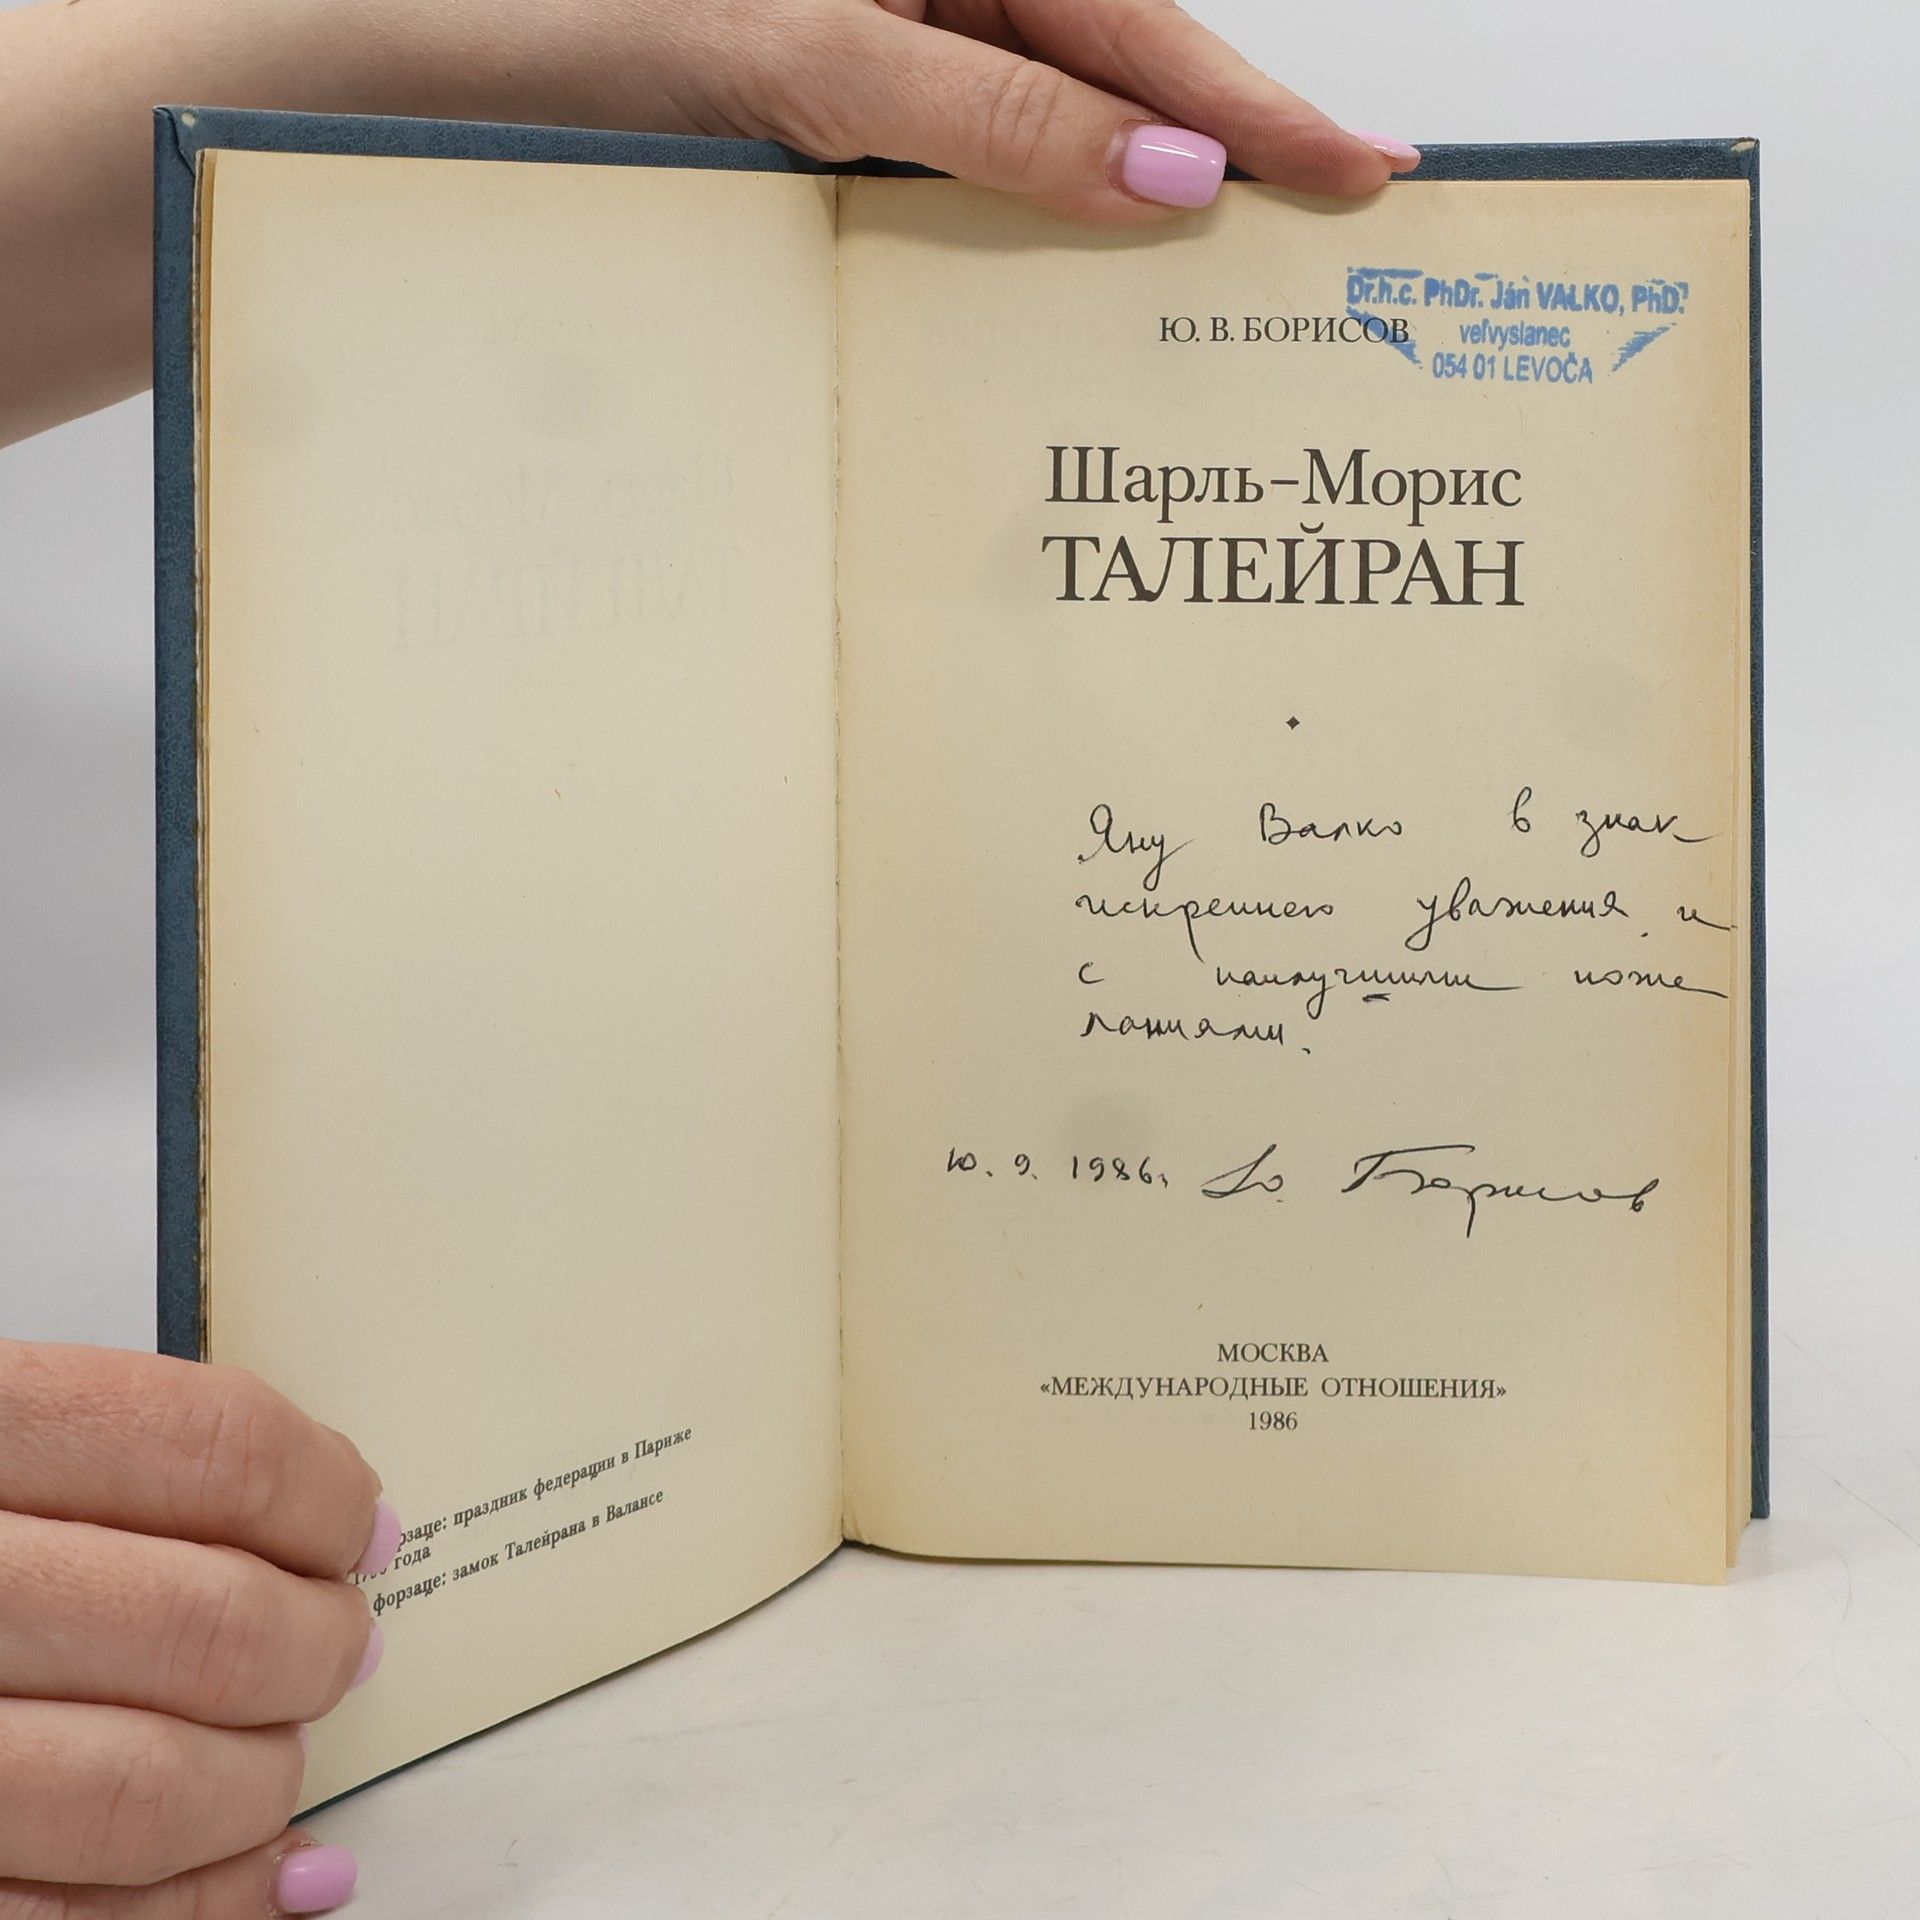 орзаце: праздник федерации в Париже
года
форзаце: замок Талейрана в Валансе
Dr.h.c. PhDr. Ján VALKO, PhD.
veľvyslanec
054 01 LEVOČA
Ю. В. БОРИСОВ
Шарль-Морис
ТАЛЕЙРАН
Яну Валко в знак
искреннего уважения и
с наилучшими поже
ланиями.
10. 9. 1986г. Ю. Борисов
МОСКВА
«МЕЖДУНАРОДНЫЕ ОТНОШЕНИЯ»
1986